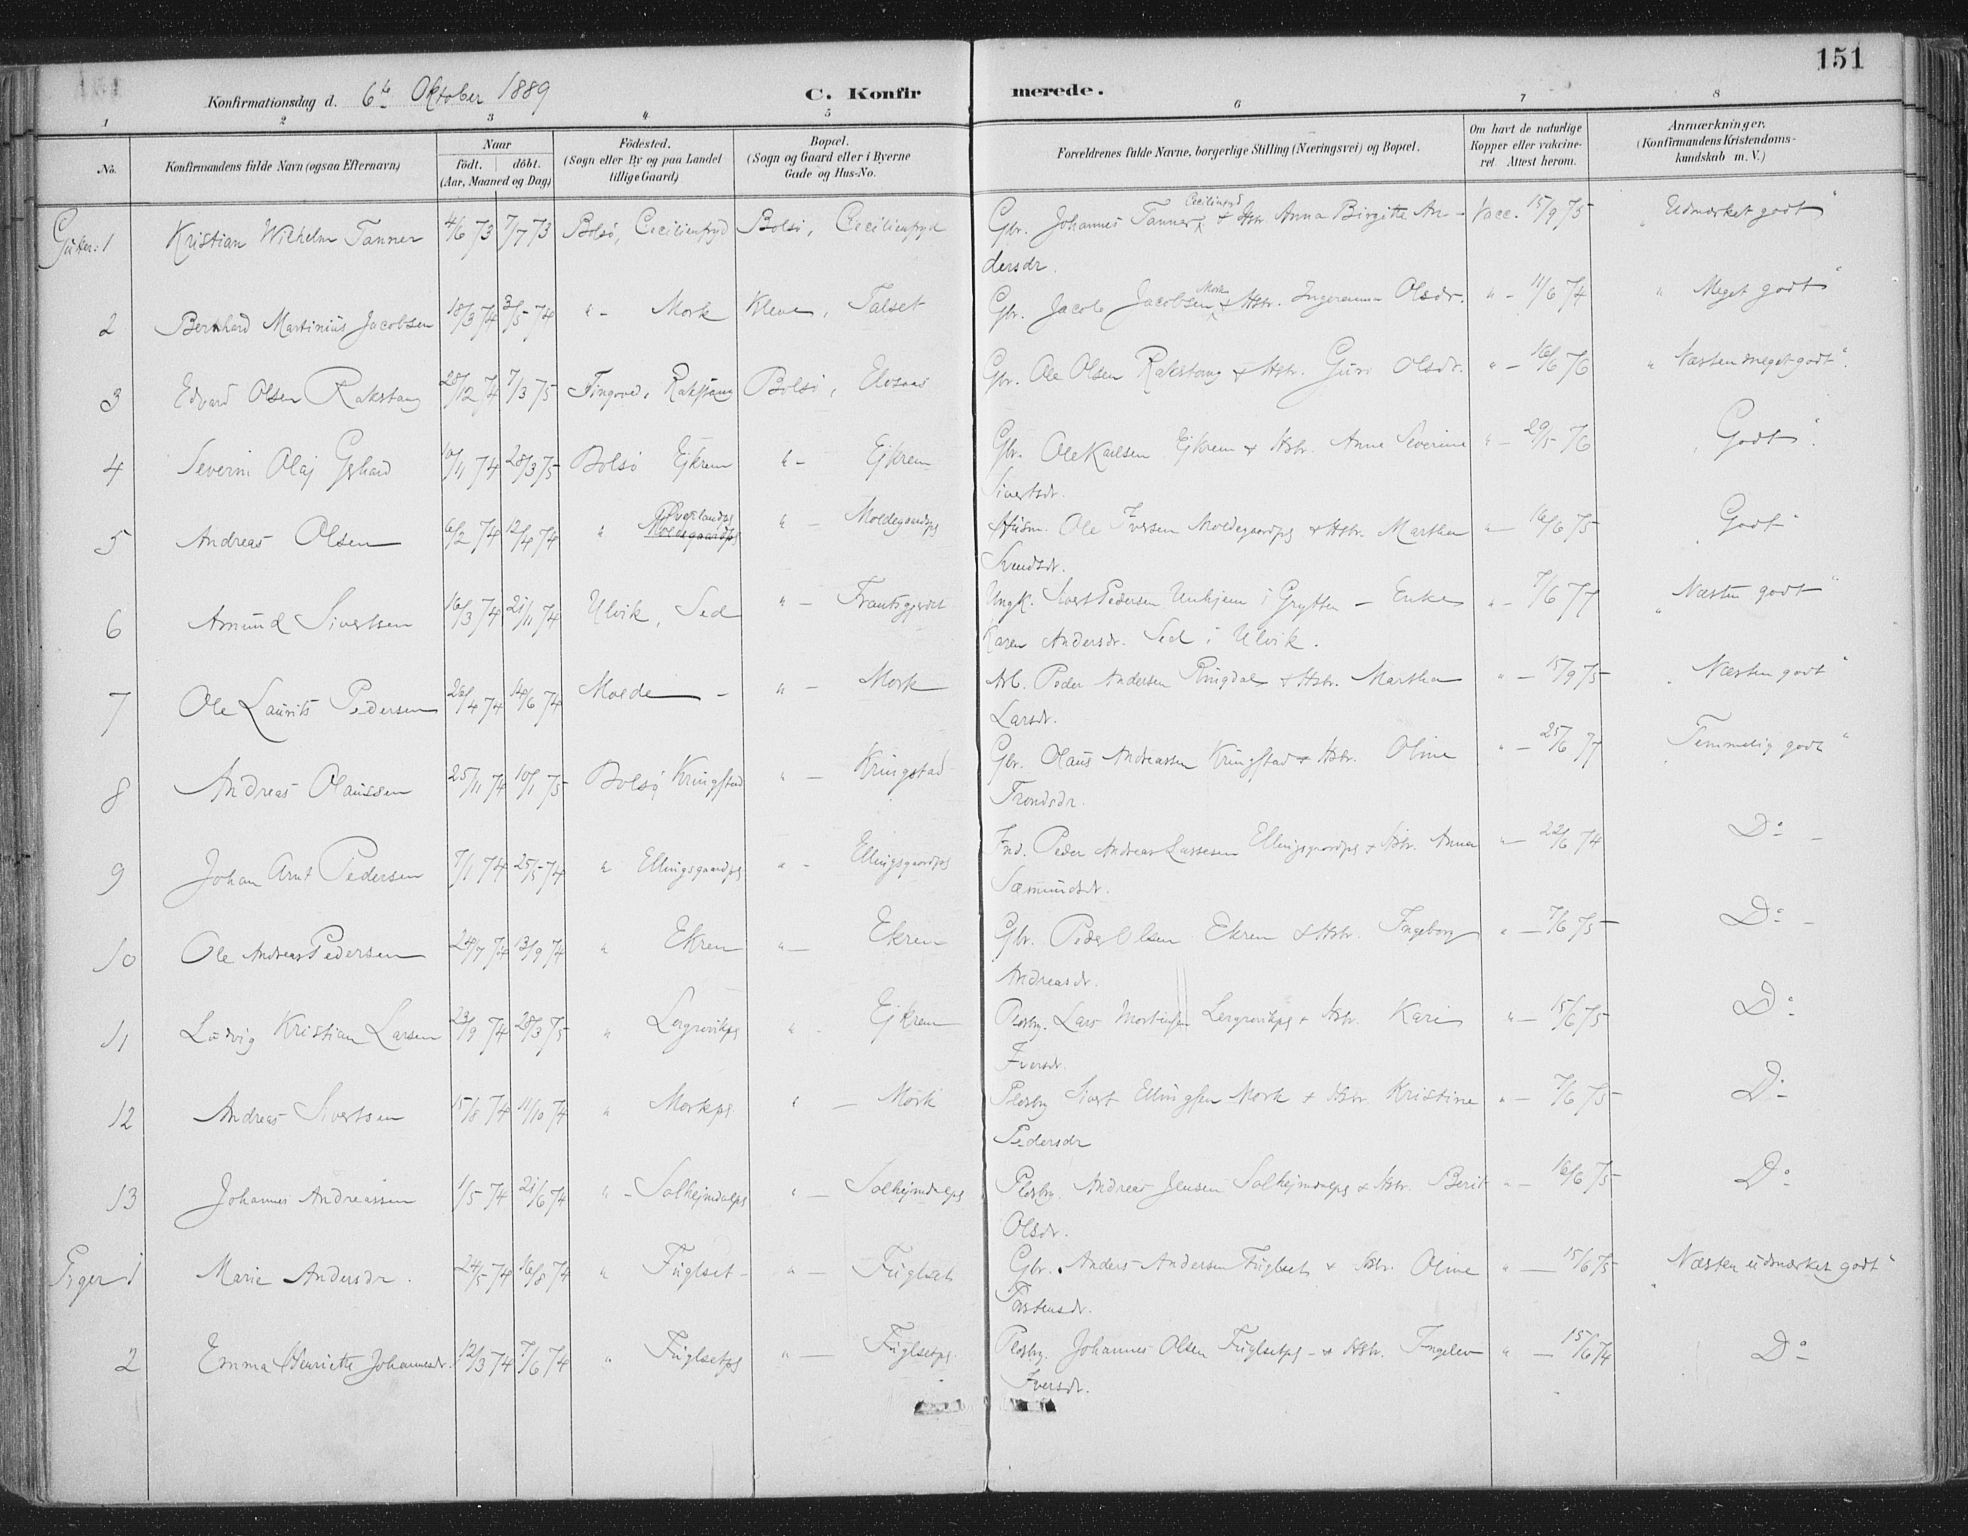 151
Konfirmationsdag d. 6te Oktober 1889 C. Konfirmerede.
1 2 3 4 5 6 7 8
No. Konfirmandens fulde Navn (ogsaa Efternavn) Naar födt. döbt. (Aar, Maaned og Dag) Födested. (Sogn eller By og paa Landet tillige Gaard) Bopæl. (Sogn og Gaard eller i Byerne Gade og Hus-No. Forældrenes fulde Navne, borgerlige Stilling (Næringsvei) og Bopæl. Om havt de naturlige Kopper eller vakcineret. Attest herom. Anmærkninger. (Konfirmandens Kristendomskundskab m. V.)
Gutter: 1 Kristian Wilhelm Tanner 4/6 73 7/7 73 Bolsö, Cecilienfryd Bolsö, Cecilienfryd Gbr. Johannes Tanner Cecilienfryd & Hstr. Anna Birgitte An- Vacc. 15/9 75 "Udmærket godt"
dersdr.
2 Bernhard Martinius Jacobsen 18/3 74 3/5 74 " - Mork Kleve, Talset Gbr. Jacob Jacobsen Mork & Hstr. Olsdr. " - 11/6 74 "Meget godt"
3 Edvard Olsen Rakstang 28/12 74 7/3 75 Rakstang Bolsö, Gbr. Ole Olsen Rakstang & Hstr. Guri Olsdr. " - 16/6 76 "Næsten meget godt".
4 Severin Olaj 28/3 75 Bolsö Ejkrem " - Ejkrem Gbr. Ole Karlsen Ejkrem & Hstr. Anne Severine " - 29/5 76 "Godt".
Sivertsdr.
5 Andreas Olsen 6/2 74 12/4 74 " Moldegaardpg " - Moldegaardpg Husm. Ole Iversen Moldegaardpg & Hstr. Martha " - 16/6 75 "Godt"
Knudsdr.
6 Amund Sivertsen 16/3 74 21/11 74 Ulvik, Sed " - Ungk. Sivert Pedersen Unhjem i Grytten - Enke " - 7/6 77 "Næsten godt"
Karen Andersdr. Sed i Ulvik.
7 Ole Laurits Pedersen 26/4 74 14/6 74 Molde - " - Mork Arb. Peder Andersen Ringdal & Hstr. Martha " - 15/9 75 "Næsten godt"
Larsdr.
8 Andreas Olaussen 25/11 74 10/1 75 Bolsö Kringstad " - Kringstad Gbr. Olaus Andreassen Kringstad & Hstr. Oline " - 25/6 77 "Temmelig godt"
Trondsdr.
9 Johan Arnt Pedersen 7/1 74 25/5 74 " Ellingsgaardpg " - Ellingsgaardpg Ind. Peder Andreas Lassesen Ellingsgaardpg & Hstr. Anna " - 22/6 74 Do -
Sæmundsdr.
10 Ole Andreas Pedersen 24/7 74 13/9 74 " Ekrem " - Ekrem Gbr. Peder Olsen Ekrem & Hstr. Ingeborg " - 7/6 75 Do -
Andreasdr.
11 Ludvig Kristian Larsen 23/9 74 28/3 75 " Lergrovikpg " Ejkrem Pladsbg. Lars Mortensen Lergrovikpg & Hstr. Kari " - 15/6 75 Do
Iversdr.
12 Andreas Sivertsen 15/8 74 11/10 74 " Morkpg " - Mork Pladsbg Sivert Ellingsen Mork & Hstr. Kristine " - 7/6 75 Do -
Pedersdr
13 Johannes Andreassen 1/5 74 21/6 74 " - Solhejmdalpg " - Solhejmdalpg Pladsbg. Andreas Jensen Solhejmdalpg & Hstr. Berit " - 16/6 75 Do
Olsdr.
Piger 1 Marie Andersdr. 24/5 74 16/8 74 " Fuglset - " - Fuglset Gbr. Anders Andersen Fuglset & Hstr. Oline " - 15/6 75 "Næsten udmærket godt"
Torstensdr.
2 Emma Henriette Johannesdr. 12/3 74 7/6 74 " Fuglsetpg " - Fuglsetpg. Pladsbg. Johannes Olsen Fuglsetpg - & Hstr. Ingelev " - 15/6 74 Do -
Iversdr.